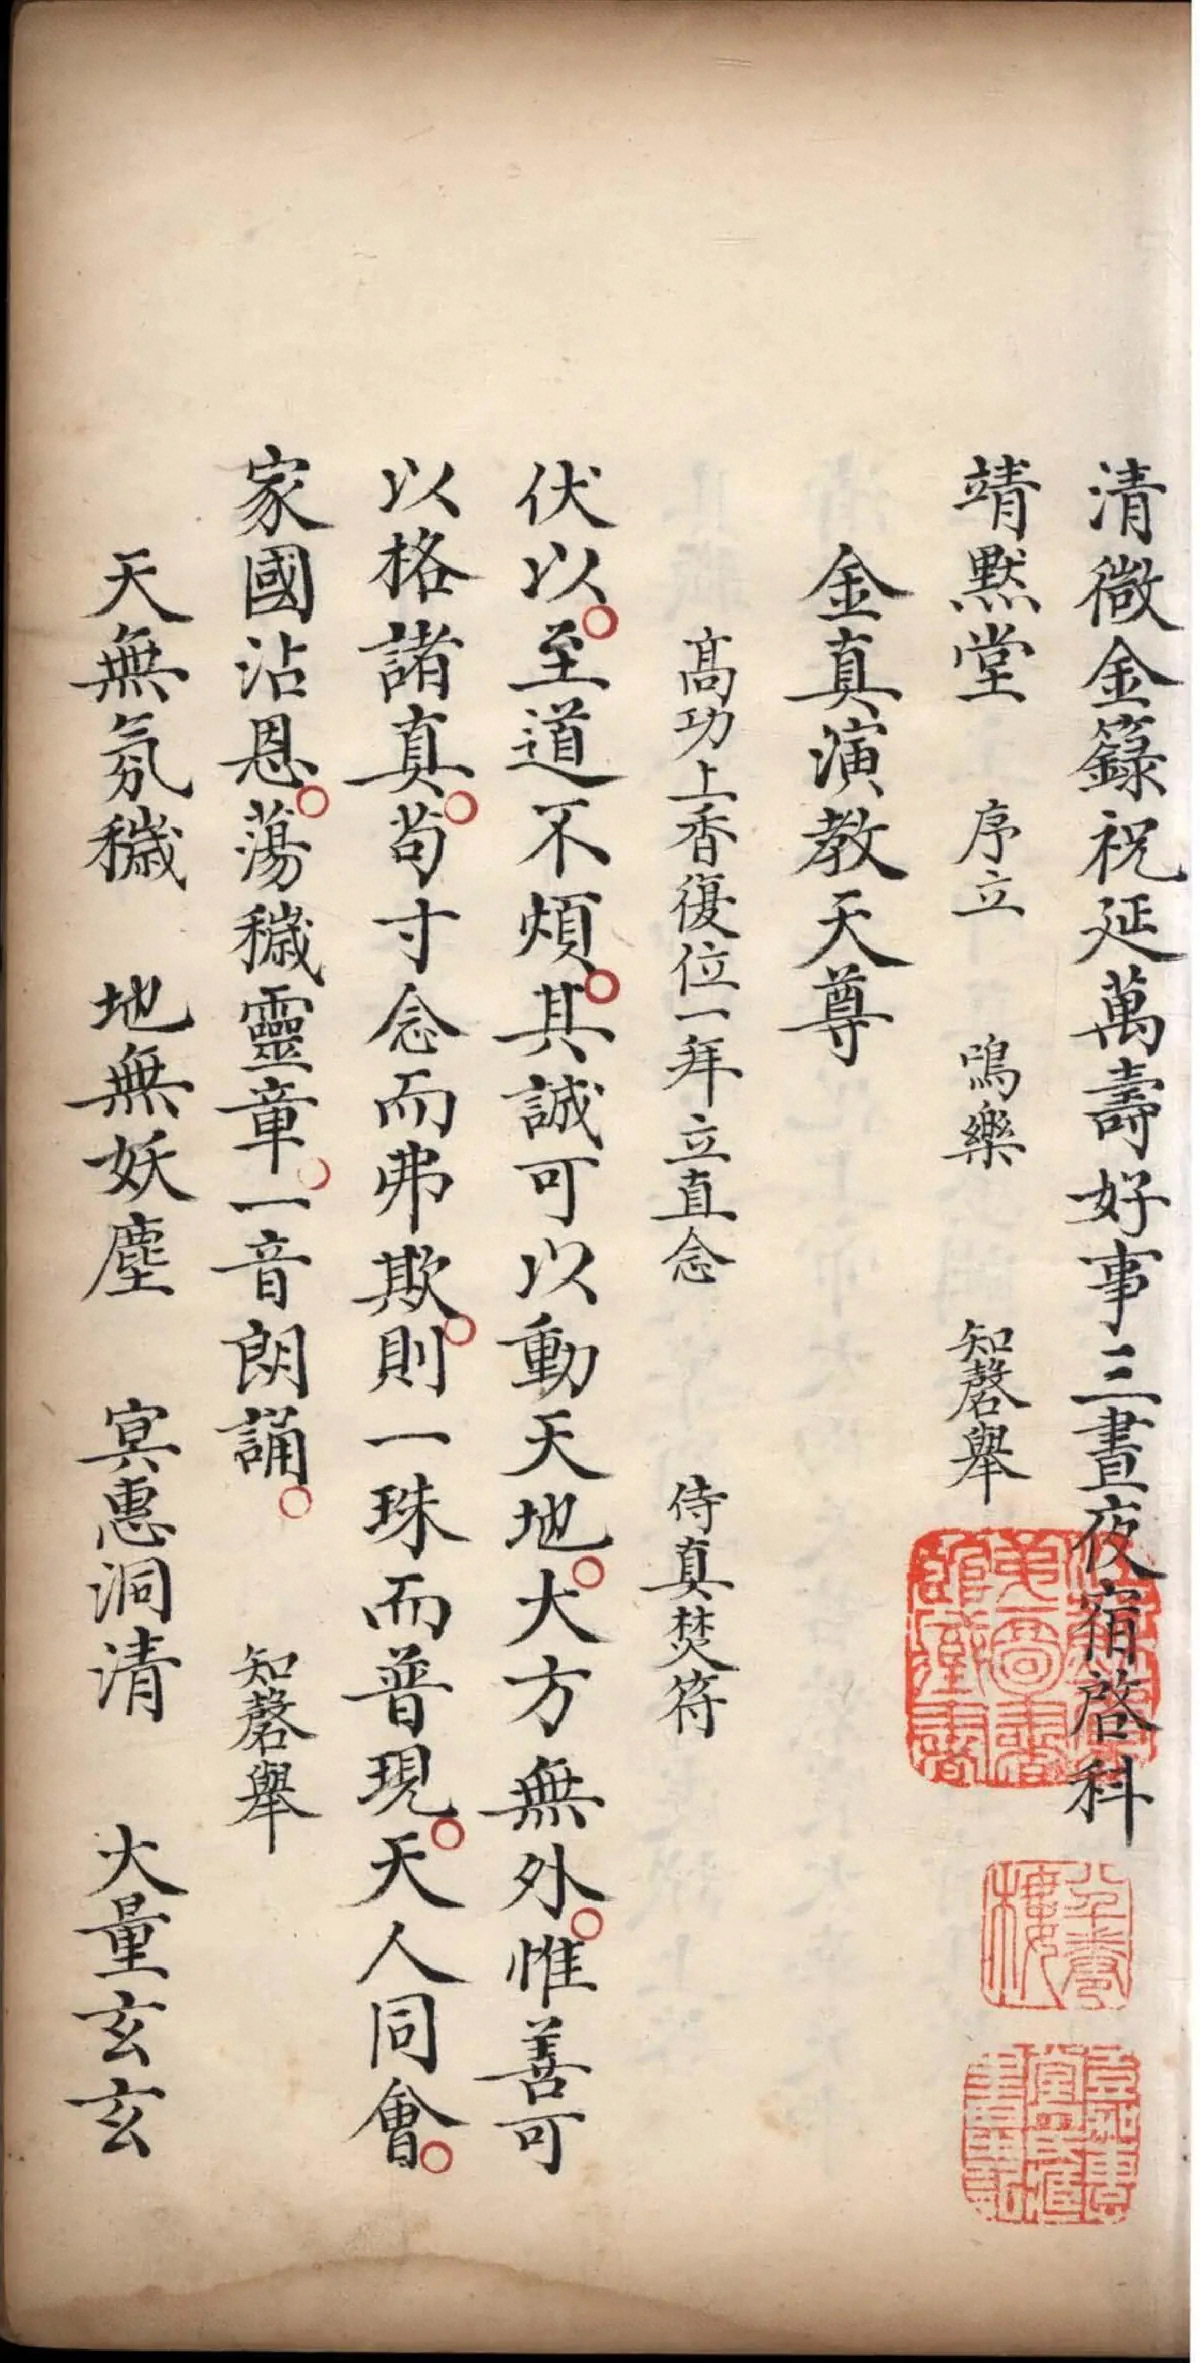 清微金籙祝延萬壽好事三晝夜宿啓科
靖黙堂 序立 鳴樂 知磬舉
金真演教天尊
髙功上香復位一拜立直念 侍真焚符
伏以至道不煩其誠可以動天地大方無外惟善可
以格諸真苟寸念而弗欺則一珠而普現天人同會
家國沾恩蕩穢靈章一音朗誦 知磬舉
天無氛穢 地無妖塵 冥惠洞清 大量玄玄